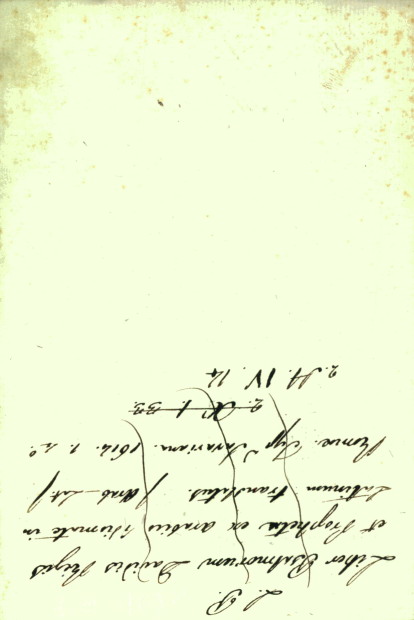 L. P.
Liber Psalmorum Davidis Regis
et Prophetæ ex arabico idiomate in
Latinum translatus. / Arab-Lat. /
Romæ. Typ. Savariana. 1614. 1. 4º.
2. X. 1. 33
2. H. IV. 14